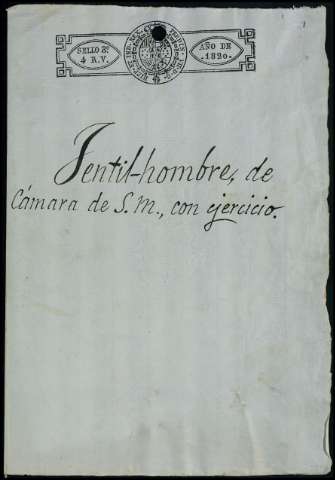 1
SELLO 3º
4 R.V.
AÑO DE
1820.
Jentil-hombre, de
Cámara de S.M., con ejercicio.